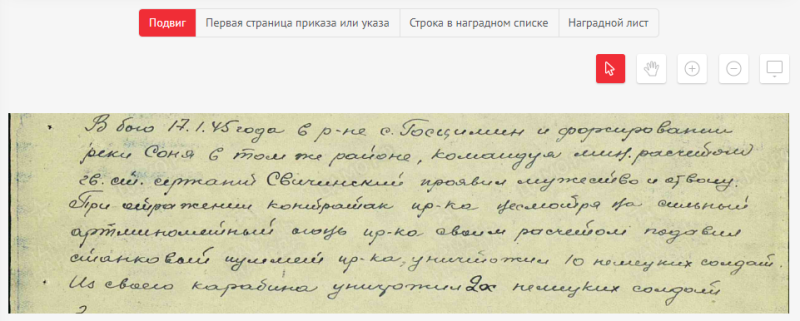 Подвиг Первая страница приказа или указа Строка в наградном списке Наградной лист
В бою 17.1.45 года в р-не с. Госцимин и форсировании
реки Соня в том же районе, командуя мин. расчетом
гв. ст. сержант Свичинский проявил мужество и отвагу.
При отражении контратак пр-ка несмотря на сильный
артминометный огонь пр-ка своим расчетом подавил
станковый пулемет пр-ка, уничтожил 10 немецких солдат.
Из своего карабина уничтожил 2х немецких солдат